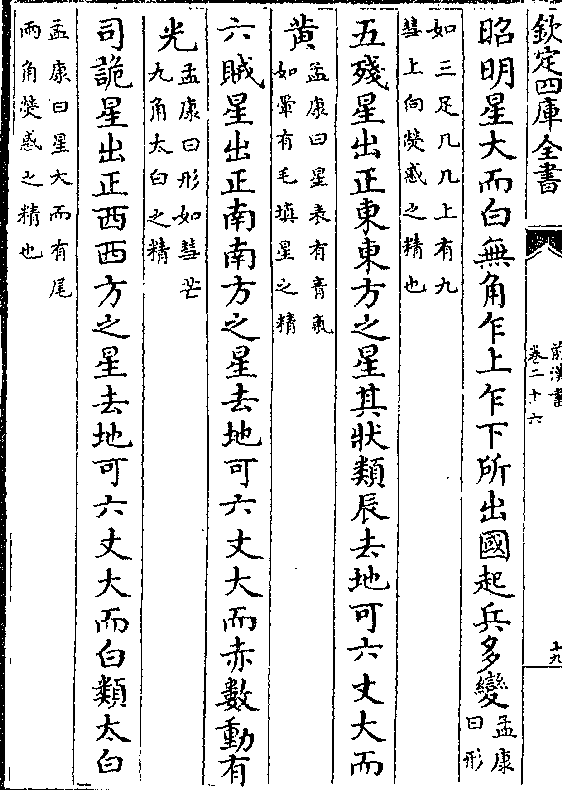 欽定四庫全書
前漢書
卷二十六
十九
昭明星大而白無角乍上乍下所出國起兵多變
孟康
曰形
如三足几几上有九
彗上向熒惑之精也
五殘星出正東東方之星其狀類辰去地可六丈大而
黄
孟康曰星表有青氣
如暈有毛填星之精
六賊星出正南南方之星去地可六丈大而赤數動有
光
孟康曰形如彗芒
九角太白之精
司詭星出正西西方之星去地可六丈大而白類太白
孟康曰星大而有尾
兩角熒惑之精也